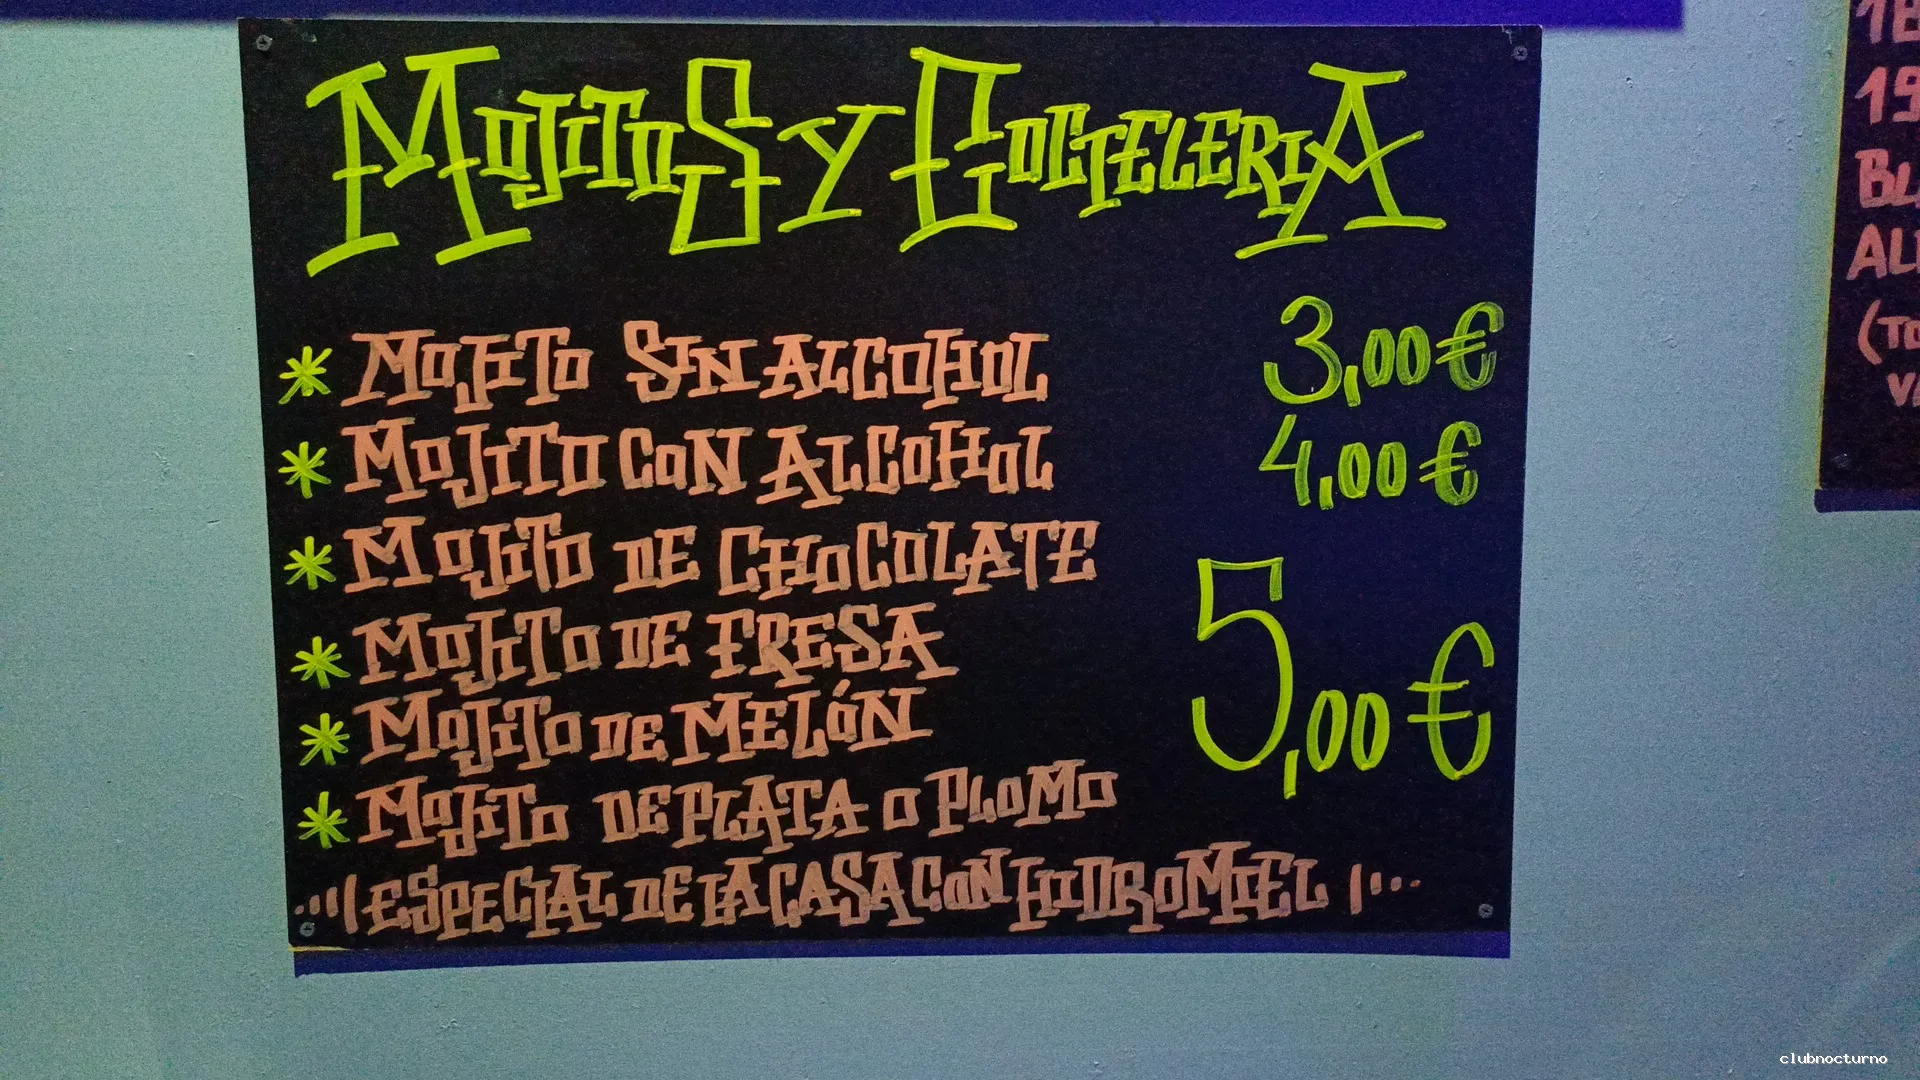 MOJITOS Y COCTELERIA
* MOJITO SIN ALCOHOL 3,00€
* MOJITO CON ALCOHOL 4,00€
* MOJITO DE CHOCOLATE
* MOJITO DE FRESA
* MOJITO DE MELÓN
5,00€
* MOJITO DE PLATA O PLOMO
...(ESPECIAL DE LA CASA CON HIDROMIEL)...
18
19
(TO
clubnocturno